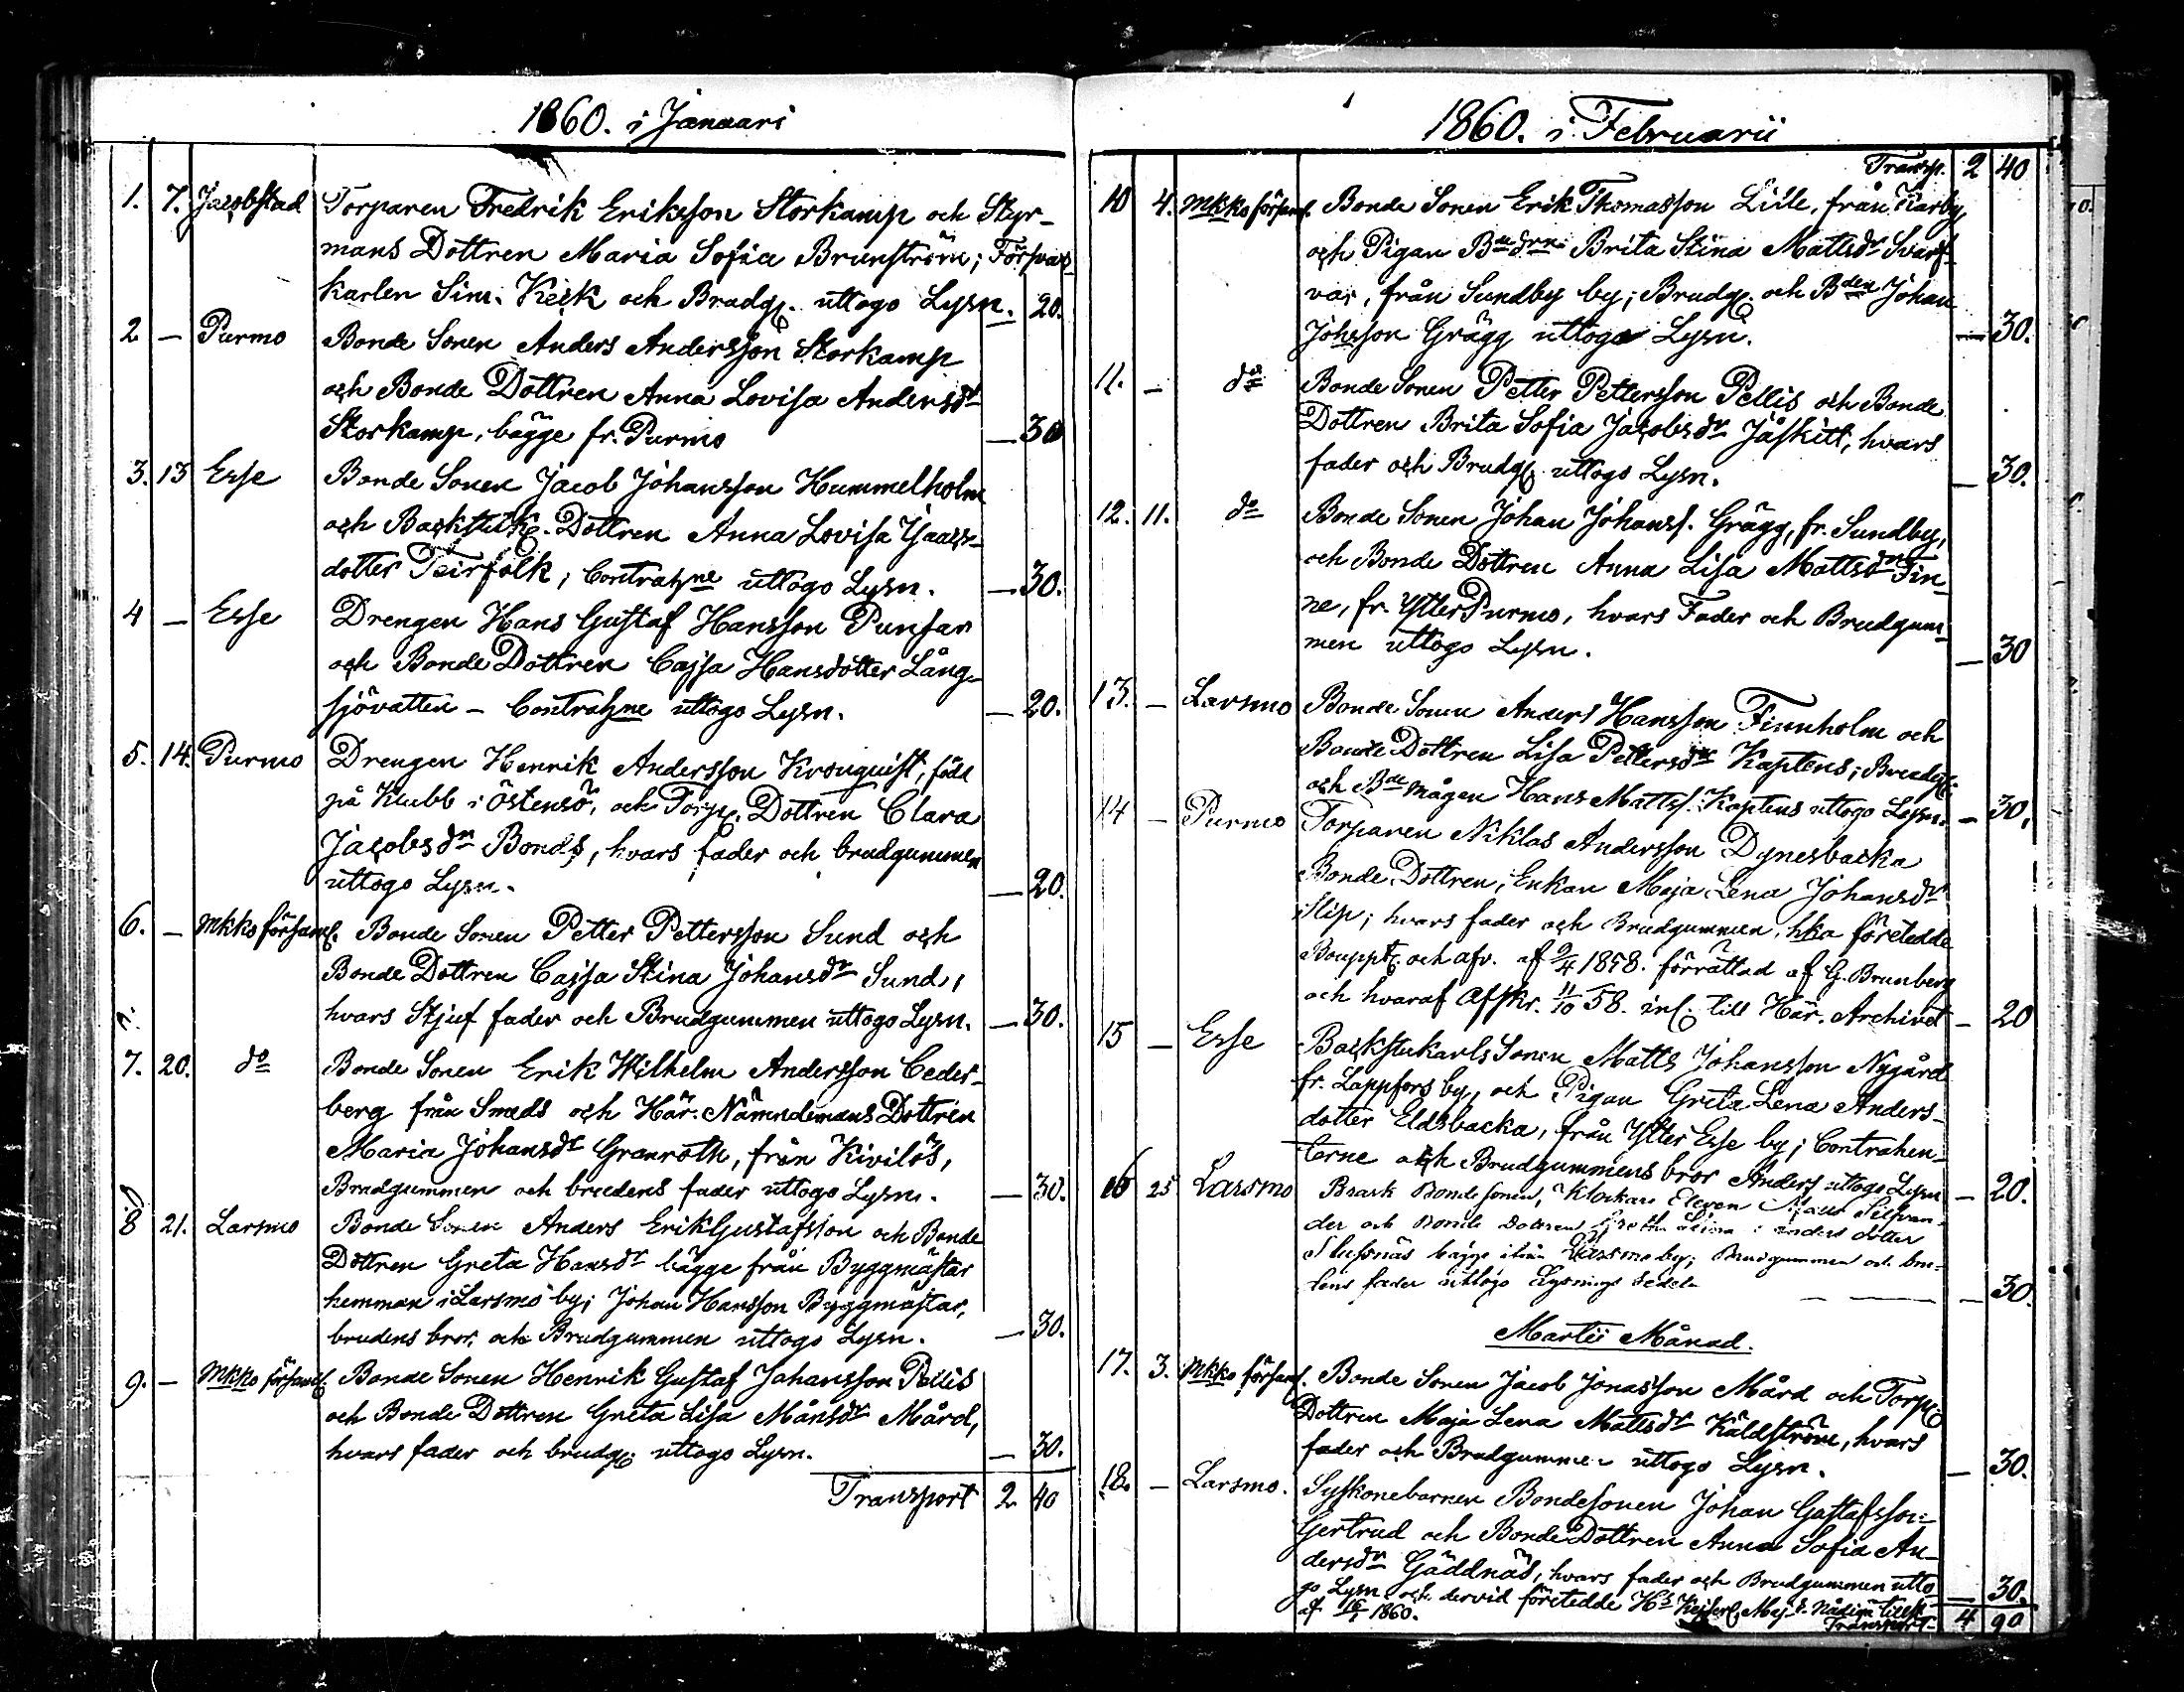 1860. i Januari
1. 7. Jacobstad Torparen Fredrik Eriksson Storkamp och Styr-
mans Dottren Maria Sofia Brunström; Försvars-
karlen Sim. Keck och Brudg. uttogo Lysn. 20.
2 — Purmo Bonde Sonen Anders Andersson Storkamp
och Bonde Dottren Anna Lovisa Andersdr
Storkamp, bägge fr. Purmo — 30
3. 13 Esse Bonde Sonen Jacob Johansson Hummelholm
och Backstuk. Dottren Anna Lovisa Isaacs-
dotter Teirfolk; Contrahne uttogo Lysn. — 30.
4 — Esse Drengen Hans Gustaf Hansson Punsar
och Bonde Dottren Cajsa Hansdotter Lång-
sjövatten – Contrahne uttogo Lysn. — 20.
5. 14. Purmo Drengen Henrik Andersson Kronquist, född
på Klubb i Östensö, och Torp. Dottren Clara
Jacobsdr Bonds, hvars fader och brudgummen
uttogo Lysn. — 20.
6. — Mkko församl. Bonde Sonen Petter Pettersson Sund och
Bonde Dottren Cajsa Stina Johansdr Sund,
hvars Stjuf fader och Brudgummen uttogo Lysn. — 30.
7. 20. do Bonde Sonen Erik Wilhelm Andersson Ceder-
berg från Smeds och Här. Nämndemans Dottren
Maria Johansdr Granroth, från Kivilös,
Brudgummen och brudens fader uttogo Lysn. — 30.
8 21. Larsmo Bonde Sonen Anders Erik Gustafsson och Bonde
Dottren Greta Hansdr bägge från Byggmästar
hemman i Larsmo by; Johan Hansson Byggmästar,
brudens bror, och Brudgummen uttogo Lysn. — 30.
9. — Mkko församl. Bonde Sonen Henrik Gustaf Johansson Pellis
och Bonde Dottren Greta Lisa Månsdr Mård,
hvars fader och brudg. uttogo Lysn. — 30.
Transport 2 40
1860. i Februarii
Transp. 2 40
10 4. Mkko församl. Bonde Sonen Erik Thomasson Lille, från Karby
och Pigan Bdedrn Brita Stina Mattsdr Svarf-
var, från Sundby by; Brudg. och Bden Johan
Johsson Grägg uttogo Lysn. — 30.
11. — do Bonde Sonen Petter Pettersson Pellis och Bonde
Dottren Brita Sofia Jacobsdr Jåskitt, hvars
fader och Brudg. uttogo Lysn. — 30.
12. 11. do Bonde Sonen Johan Johanss. Grägg, fr. Sundby,
och Bonde Dottren Anna Lisa Mattsdr Fin-
ne, fr. Ytter Purmo, hvars Fader och Brudgum-
men uttogo Lysn. — 30
13. — Larsmo Bonde Sonen Anders Hansson Finnholm och
Bonde Dottren Lisa Pettersdr Kaptens; Brudg.
och Bde mågen Hans Mattss. Kaptens uttogo Lysn. — 30.
14 — Purmo Torparen Niklas Andersson Dynesbacka
Bonde Dottren, Enkan Maja Lena Johansdr
Slip; hvars fader och Brudgummen, hka företedde
Bouppt. och afv. af 9/4 1858. förrättad af G. Brunberg
och hvaraf Afskr. 11/10 58. inl. till Här. Archivet — 20
15 — Esse Backstukarls Sonen Matts Johansson Nygård
fr. Lappfors by, och Pigan Greta Lena Anders-
dotter Eldsbacka, från Ytter Esse by; Contrahen-
terne och Brudgummens bror Anders uttogo Lysn — 20.
16 25 Larsmo Bonde sonen, Klockare Eleven Matts Silfvan-
der och Bonde Dottren Greta Anders dotter
Slussnäs bägge ifrån Larsmo by; Brudgummen och bru-
dens fader uttogo Lysnings Sedeln — 30.
Martii Månad.
17. 3. Mkko församl. Bonde Sonen Jacob Jonasson Mård och Torp.
Dottren Maja Lena Mattsdr Käldström, hvars
fader och Brudgummen uttogo Lysn. — 30.
18. — Larsmo. Syskonebarnen Bondesonen Johan Gustafsson
Gertrud och Bonde Dottren Anna Sofia An-
dersdr Gäddnäs, hvars fader och Brudgummen utto-
go Lysn och dervid företedde Hs Kejserl. Maj:ts Nådiga tillst. — 30.
af 16/1 1860. Transport 4 90